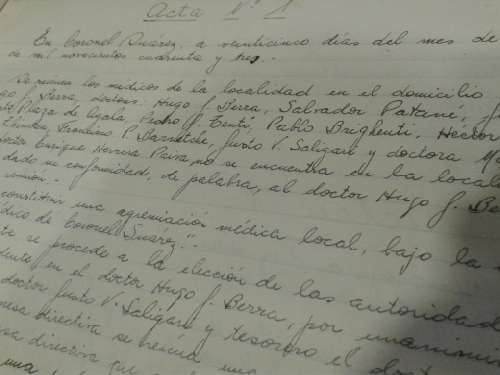 Acta Nº 1
En Coronel Suárez, a veinticinco días del mes de
de mil novecientos cuarenta y tres.-
Se reunen los médicos de la localidad en el domicilio
J. Berra, doctores: Hugo J. Berra, Salvador Patané,
Plaza de Ayala, Pedro J. Tenti, Pablo Brighenti, Hector
P. Barnetche, Justo V. Saligari y doctora
doctor Enrique Herrera Paiva, no se encuentra en la local
dado su conformidad, de palabra, al doctor Hugo J. Be
reunión.-
constituir una agremiación médica local, bajo la
dico de Coronel Suárez".-
te se procede a la elección de las autoridad
dente en el doctor Hugo J. Berra, por unanimi
doctor Justo V. Saligari y tesorero el doct
mesa directiva se reúna una
sa directiva que
una